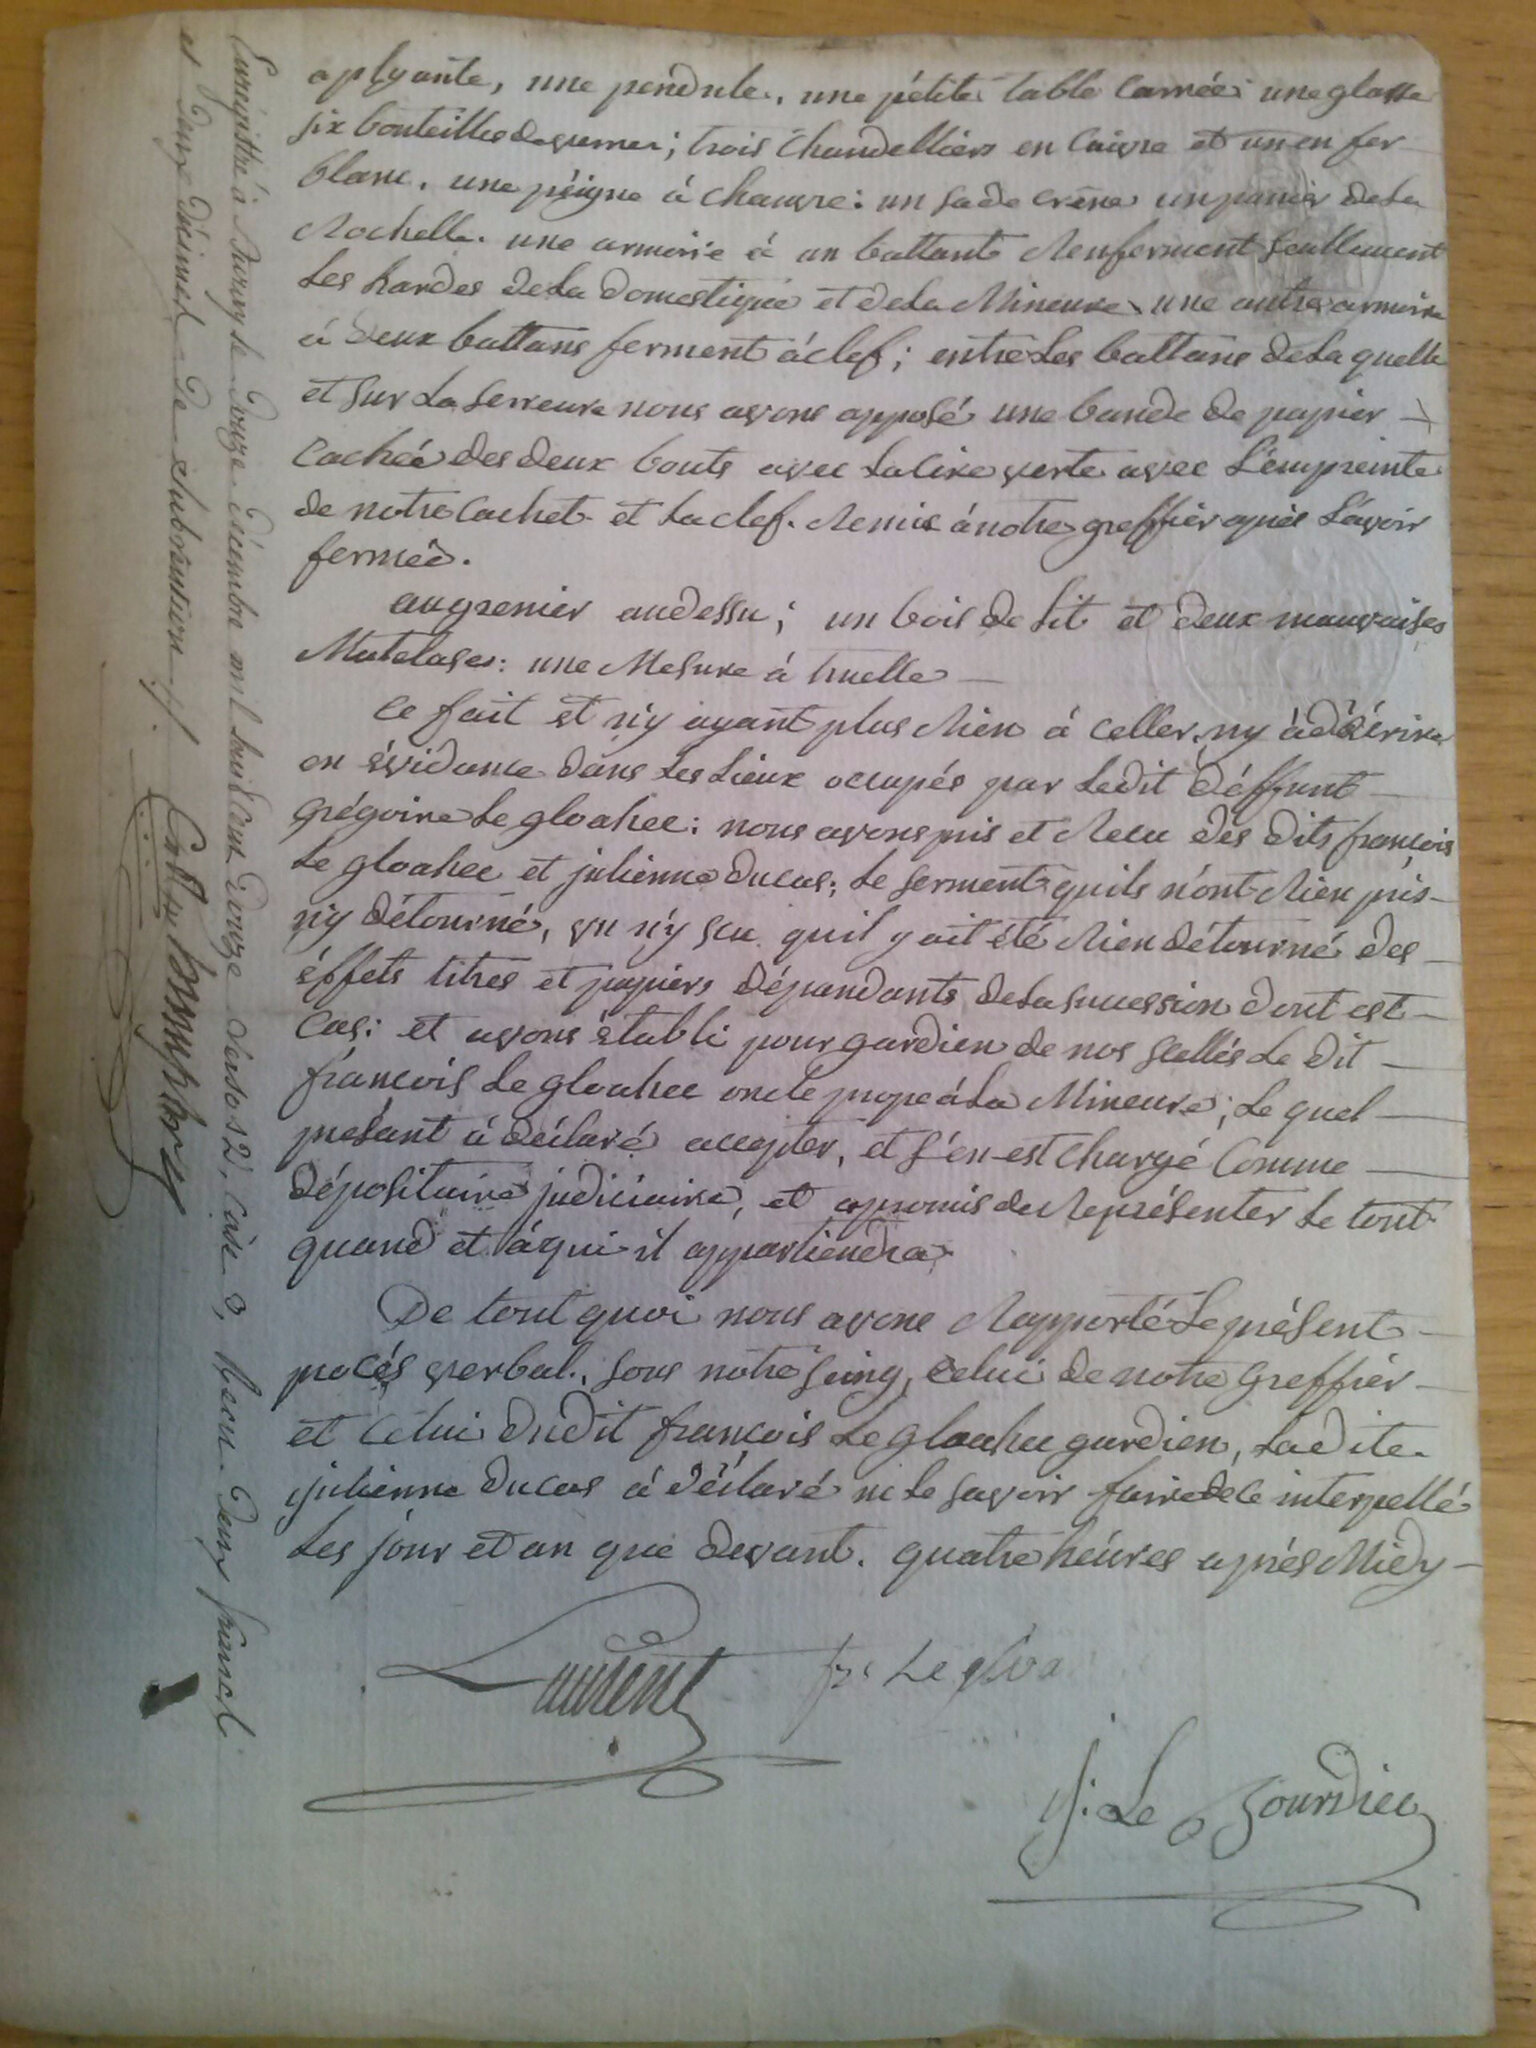 aplyante, une pendule, une pétite table Carrée; une glasse
six bouteilles de verre; trois Chandelliers en Cuivre et un en fer
blanc. une péigne à chanvre: un sa de crêne un panier de La
Rochelle. une armoire à un battant Renferment seullement
Les hardes de La domestique et de La Mineure, une autre armoire
à deux battans ferment à clef; entre Les battans de La quelle
et sur La serreure nous avons apposé une bande de papier
Cachée des deux bouts avec La Cire verte avec L'empreinte
de notre Cachet et La clef. Remis à notre greffier après L'avoir
fermée.
au grenier audessu; un bois de Lit et deux mauvaises
Matelases: une Mesure à huelle
Ce fait et n'y ayant plus Rien à Celler, ny à décrire
en évidance dans Les Lieux occupés par Le dit déffunt
grégoire Le gloahec: nous avons pris et Recu des dits françois
Le gloahec et julienne Ducas; Le serment quils n'ont Rien pris
n'y détourné, vu n'y scu quil y ait été Rien détourné des
éffets titres et papiers dépandants de La sucession dont est
Cas: et avons établi pour gardien de nos scellés Le dit
françois Le gloahec oncle propre à La Mineure; Le quel
présant à déclaré accepter, et s'en est Chargé Comme
dépositaire judiciaire, et a promis de Représenter Le tout
quand et à qui il appartiendra.
De tout quoi nous avons Rapporté Le présent
procés verbal, sous nôtre seing, Celui de notre Greffier
et Celui dudit françois Le Gloahec gardien, La dite
julienne Ducas à déclaré ne Le savoir faire de ce interpellé
Les jour et an que devant. quatre héures après Midy
Laurent
fs Le gloa
J: Le Gourdiec
Enregistré à Sarzeau le Douze Décembre mil huit Cent Douze verso 52, Case 3, Recu Deux francs
et Deux Décimes de subvention